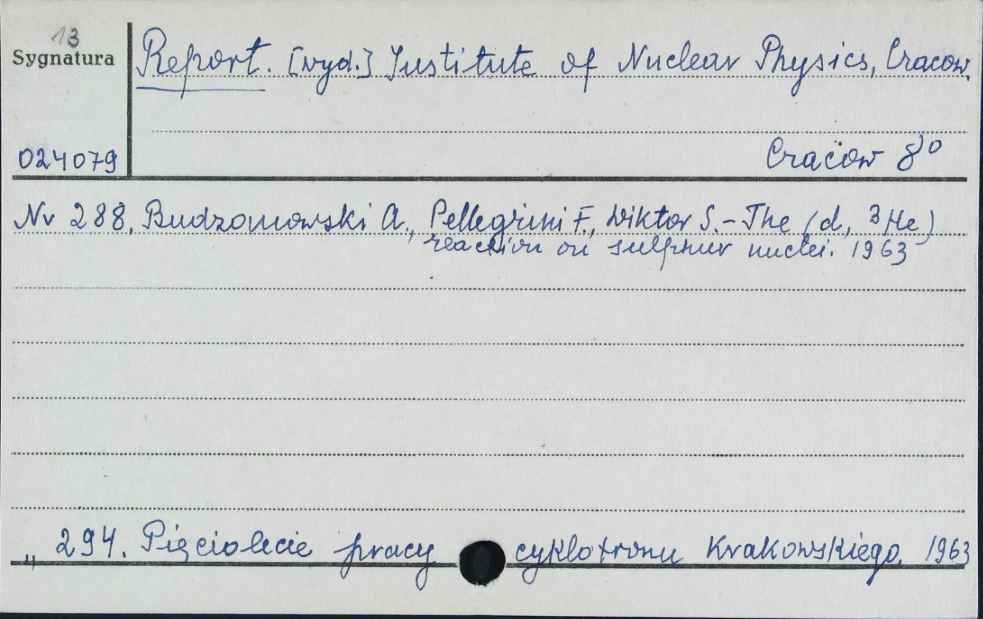 13
Sygnatura
Report. [wyd.] Institute of Nuclear Physics, Cracow.
024079
Cracow 8°
Nr 288. Budzanowski A., Pellegrini F., Wiktor S. - The (d, ³He)
reaction on sulphur nuclei. 1963
„ 294. Pięciolecie pracy cyklotronu Krakowskiego. 1963